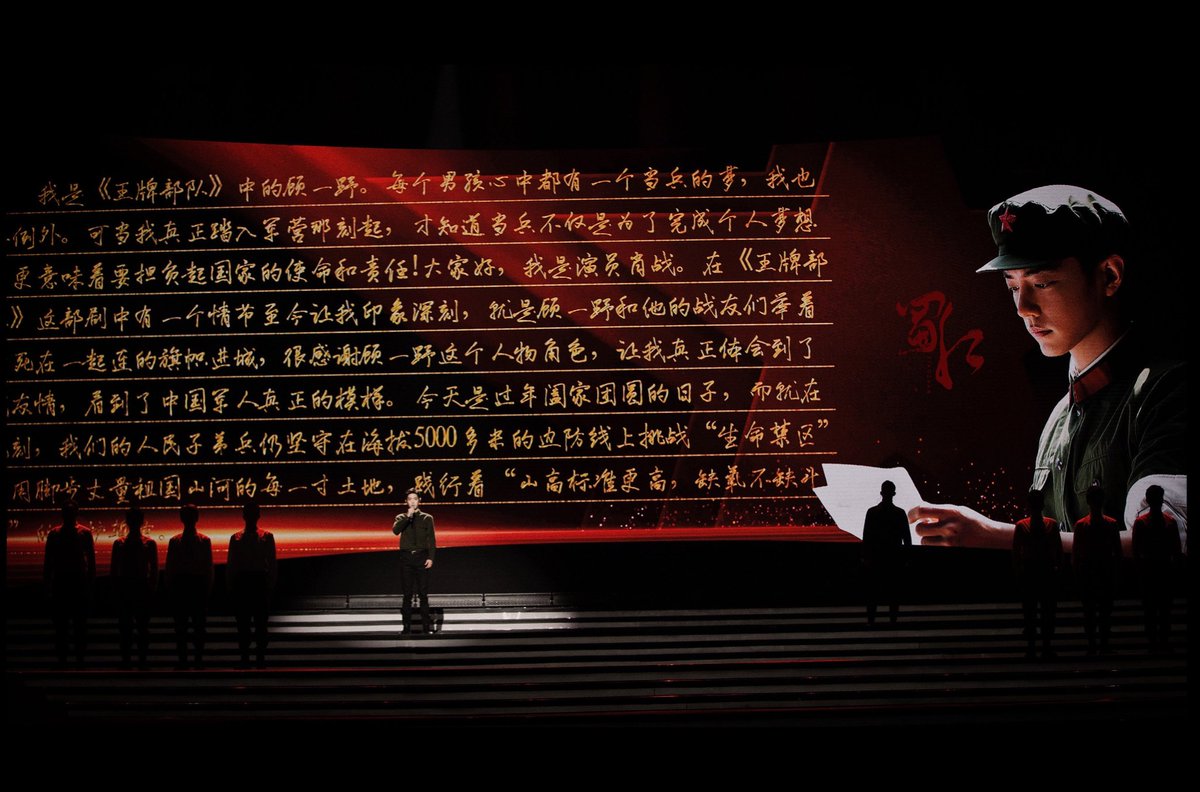 我是《王牌部队》中的顾一野。每个男孩心中都有一个当兵的梦，我也
例外。可当我真正踏入军营那刻起，才知道当兵不仅是为了完成个人梦想
更意味着要担负起国家的使命和责任！大家好，我是演员肖战。在《王牌部
》这部剧中有一个情节至今让我印象深刻，就是顾一野和他的战友们举着
死在一起连的旗帜进城，很感谢顾一野这个人物角色，让我真正体会到了
友情，看到了中国军人真正的模样。今天是过年阖家团圆的日子，而就在
刻，我们的人民子弟兵仍坚守在海拔5000多米的边防线上挑战“生命禁区”
用脚步丈量祖国山河的每一寸土地，践行着“山高标准更高，缺氧不缺斗